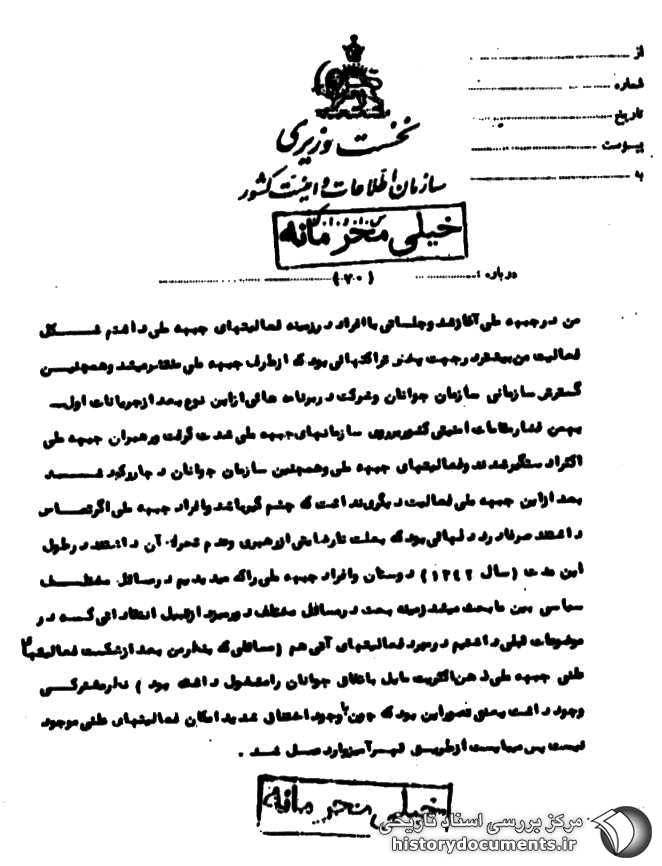 از
شماره
تاریخ
پیوست
به
نخست وزیری
سازمان اطلاعات و امنیت کشور
خیلی محرمانه
درباره : (۷۰)
من در جبهه ملی آغاز شد و جلساتی با افراد در زمینه فعالیتهای جبهه ملی داشتم شکل
فعالیت من بیشتر در جهت پخش تراکتهائی بود که از طرف جبهه ملی منتشر میشد و همچنین
گسترش سازمانی سازمان جوانان و شرکت در برنامه هائی از این نوع بعد از جریانات اول
بهمن فشار مقامات امنیتی کشور بر روی سازمانهای جبهه ملی شدت گرفت و رهبران جبهه ملی
اکثرا دستگیر شدند و فعالیتهای جبهه ملی و همچنین سازمان جوانان دچار رکود شد
بعد از این جبهه ملی فعالیت دیگری نداشت که چشم گیر باشد و افراد جبهه ملی اگر تماس
داشتند صرفا درد دلهائی بود که بعلت نارضایتی از رهبری و عدم تحرک آن داشتند در طول
این مدت (سال ۱۳۴۲) دوستان و افراد جبهه ملی را که میدیدیم در مسائل مختلف
سیاسی بین ما بحث میشد زمینه بحث در مسائل مختلف دور میزد از قبیل انتقاداتی که در
موضوعات قبلی داشتیم در مورد فعالیتهای آتی هم (مسائلی که بنظر من بعد از شکست فعالیتهای
علنی جبهه ملی ذهن اکثریت مایل باتفاق جوانان را مشغول داشته بود) نظر مشترکی
وجود داشت یعنی تصور این بود که چون با وجود اختناق شدید امکان فعالیتهای علنی موجود
نیست پس میبایست از طریق قهرآمیز وارد عمل شد .
خیلی محرمانه
مرکز بررسی اسناد تاریخی
historydocuments.ir